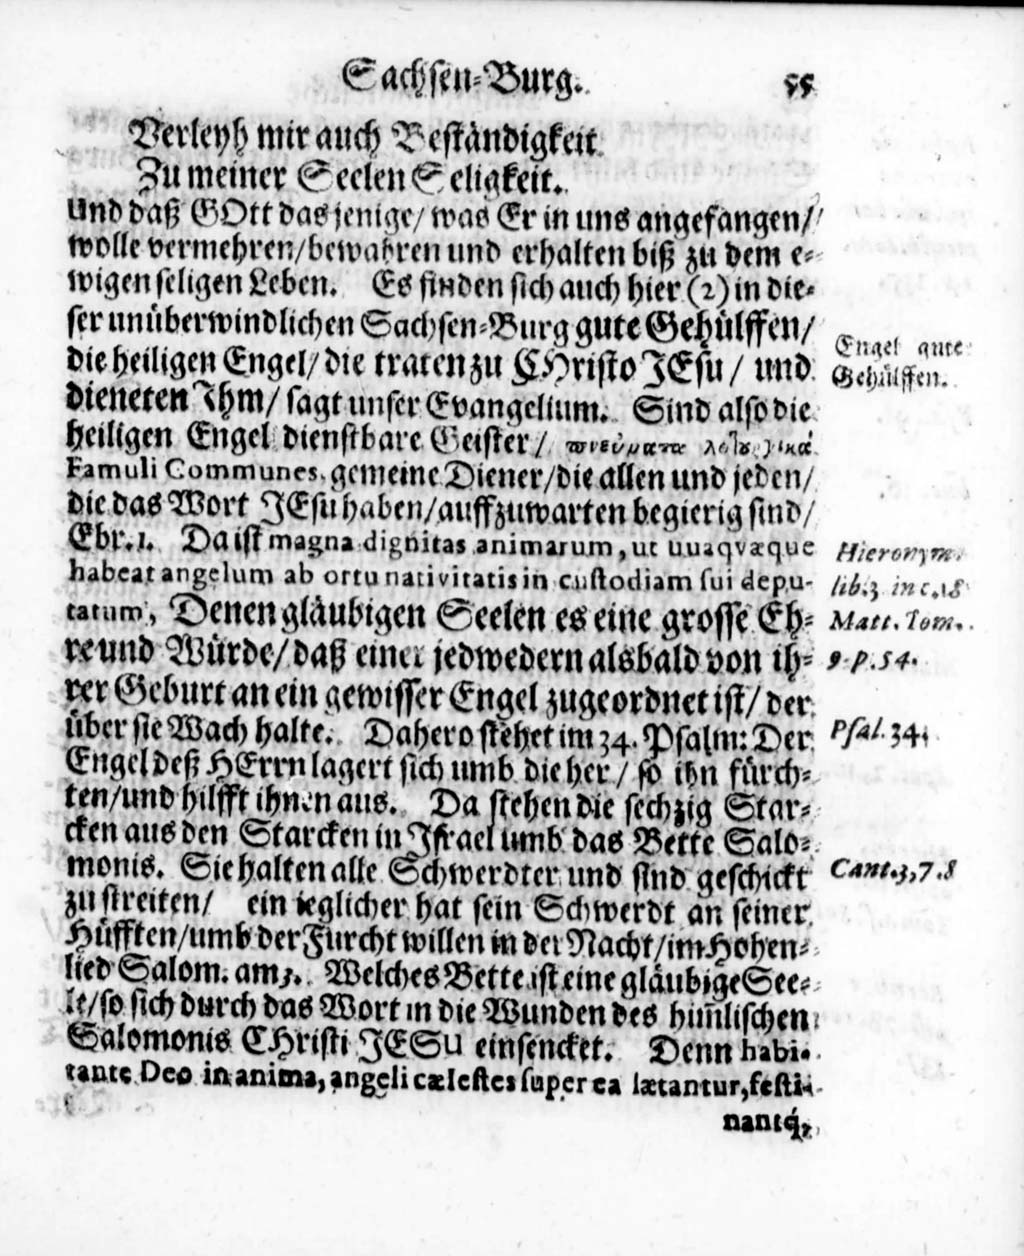 Sachsen-Burg. 55
Verleyh mir auch Beständigkeit
Zu meiner Seelen Seligkeit.
Und daß GOtt dasjenige/ was Er in uns angefangen/
wolle vermehren/bewahren und erhalten biß zu dem e-
wigen seligen Leben. Es finden sich auch hier (2) in die-
ser unüberwindlichen Sachsen-Burg gute Gehülffen/
die heiligen Engel/ die traten zu CHristo JEsu / und
dieneten Ihm/ sagt unser Evangelium. Sind also die
heiligen Engel dienstbare Geister / πνεύματα
Famuli Communes, gemeine Diener/die allen und jeden/
die das Wort JEsu haben/auffzuwarten begierig sind/
Ebr. 1. Da ist magna dignitas animarum, ut unaqvæque
habeat angelum ab ortu nativitatis in custodiam sui depu-
tatum, Denen gläubigen Seelen es eine grosse Eh-
re und Würde/ daß einer jedwedern alsbald von ih-
rer Geburt an ein gewisser Engel zugeordnet ist/ der
über sie Wach halte. Dahero stehet im 34. Psalm: Der
Engel deß HErrn lagert sich umb die her / so ihn fürch-
ten/und hilfft ihnen aus. Da stehen die sechzig Star-
cken aus den Starcken in Israel umb das Bette Salo-
monis. Sie halten alle Schwerdter und sind geschickt
zu streiten/ ein ieglicher hat sein Schwerdt an seiner
Hüfften/umb der Furcht willen in der Nacht/im Hohen-
lied Salom. am 3. Welches Bette ist eine gläubige See-
le/so sich durch das Wort in die Wunden des him̃lischen
Salomonis CHristi JESU einsencket. Denn habi-
tante Deo in anima, angeli cælestes super ea lætantur, festi-
nantq́;
Engel gute
Gehülffen.
Hieronym.
lib. 3 in c. 18
Matt. Tom.
9. p. 54.
Psal. 34.
Cant. 3, 7. 8